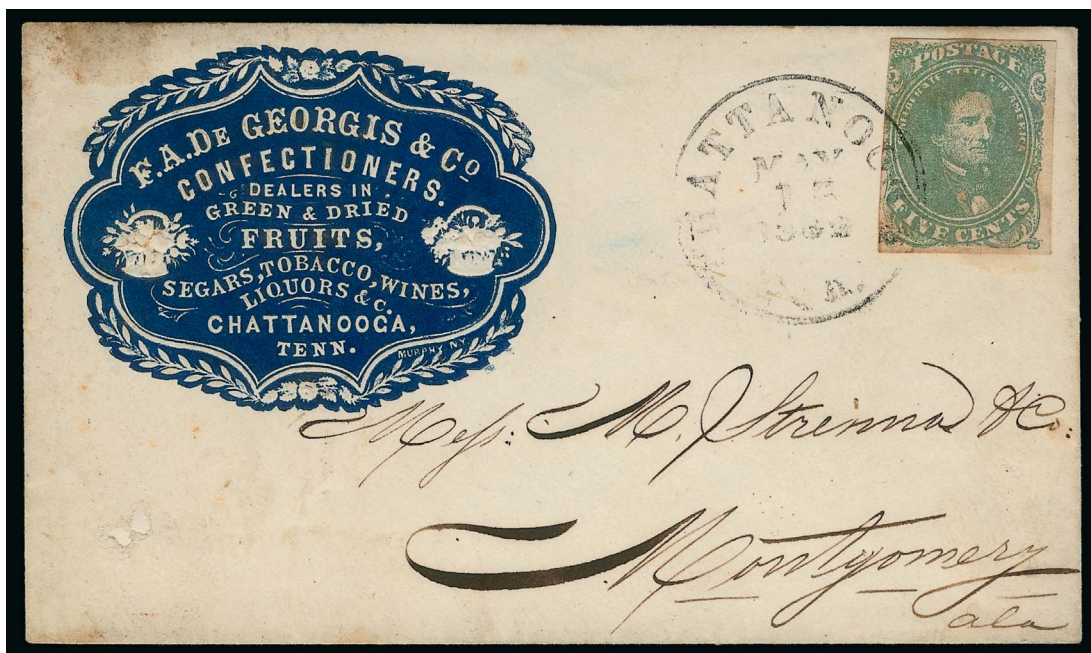 F. A. DE GEORGIS & Co
CONFECTIONERS.
DEALERS IN
GREEN & DRIED
FRUITS,
SEGARS, TOBACCO, WINES,
LIQUORS & C.
CHATTANOOGA,
TENN.
MURPHY NY
MAY
1862
POSTAGE
CONFEDERATE STATES OF AMERICA
FIVE CENTS
Mess: M. Strenna & Co:
Montgomery
Ala